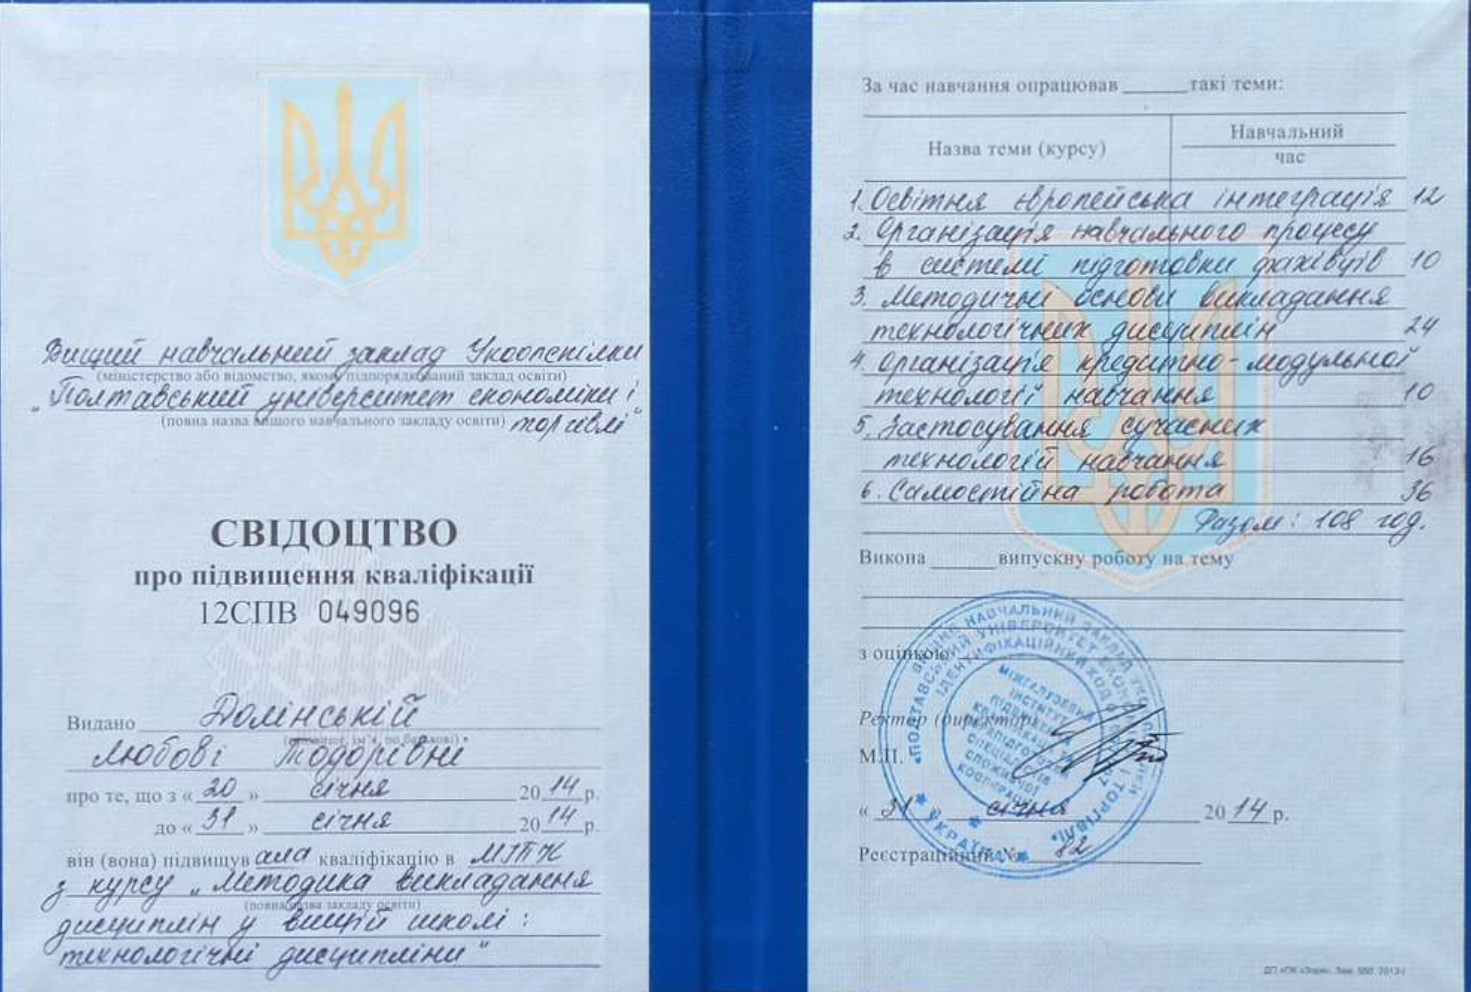 Вищий навчальний заклад Укоопспілки
(міністерство або відомство, якому підпорядкований заклад освіти)
„Полтавський університет економіки і
(повна назва вищого навчального закладу освіти) торгівлі"
СВІДОЦТВО
про підвищення кваліфікації
12СПВ 049096
Видано Долінській
(прізвище, ім'я, по батькові)
Любові Тодорівні
про те, що з « 20 » січня 20 14 р.
до « 31 » січня 20 14 р.
він (вона) підвищув ала кваліфікацію в МІПК
з курсу „Методика викладання
(повна назва закладу освіти)
дисциплін у вищій школі:
технологічні дисципліни"
За час навчання опрацював ______ такі теми:
Назва теми (курсу)
Навчальний
час
1. Освітня європейська інтеграція 12
2. Організація навчального процесу
в системі підготовки фахівців 10
3. Методичні основи викладання
технологічних дисциплін 24
4. Організація кредитно-модульної
технології навчання 10
5. Застосування сучасних
технологій навчання 16
6. Самостійна робота 36
Разом: 108 год.
Викона ______ випускну роботу на тему
з оцінкою
Ректор (директор)
М.П.
« 31 » січня 20 14 р.
Реєстраційний № 82
ВИЩИЙ НАВЧАЛЬНИЙ ЗАКЛАД
«ПОЛТАВСЬКИЙ УНІВЕРСИТЕТ ЕКОНОМІКИ І ТОРГІВЛІ»
ІДЕНТИФІКАЦІЙНИЙ КОД
* УКРАЇНА *
МІЖГАЛУЗЕВИЙ
ІНСТИТУТ
ПІДВИЩЕННЯ
КВАЛІФІКАЦІЇ
СПЕЦІАЛІСТІВ
СПОЖИВЧОЇ
КООПЕРАЦІЇ
ДП «ПК «Зоря». Зам. 550. 2013 г